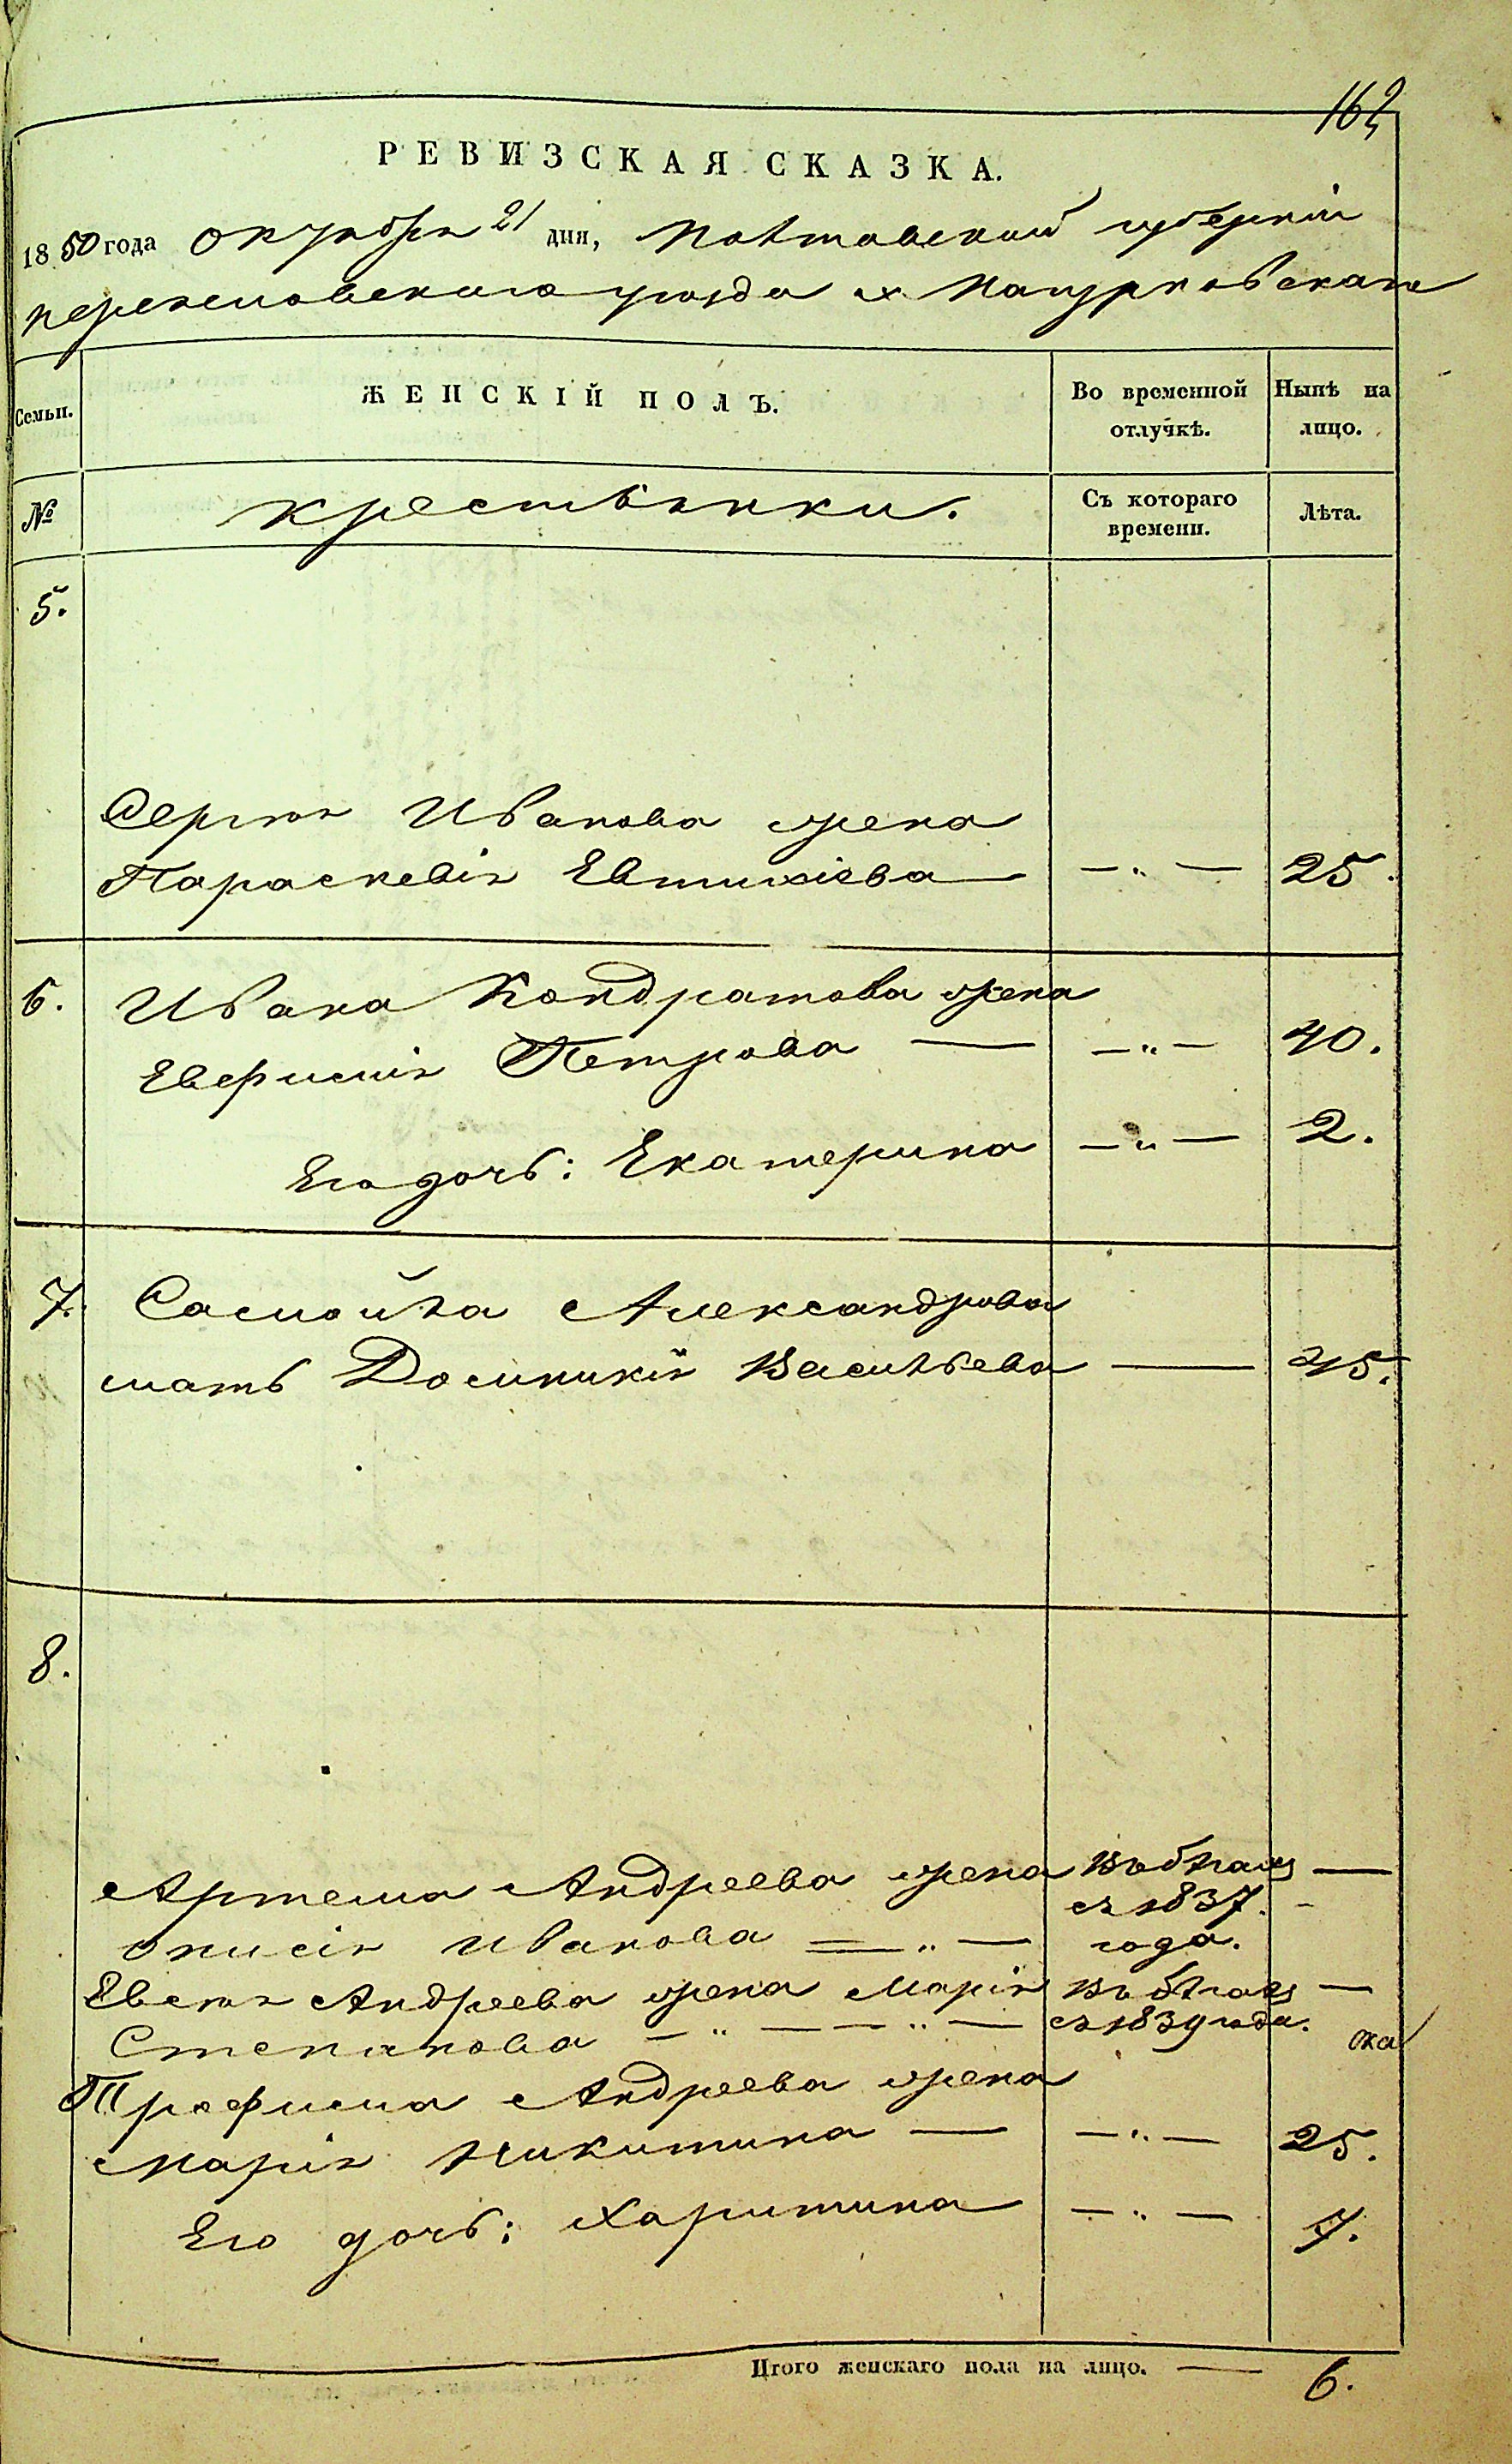 162
РЕВИЗСКАЯ СКАЗКА.
1850 года октября 21 дня, Полтавской губернии
переясловского уезда х. Мацурковскаго
Семьи. ЖЕНСКІЙ ПОЛЪ. Во временной отлучкѣ. Нынѣ на лицо.
№ крестьянки. Съ котораго времени. Лѣта.
5.
Сергея Иванова жена
Параскевія Евтихіева — „ — 25.
6. Ивана Кондратова жена
Евфимія Петрова — — „ — 40.
Его дочь: Екатерина — „ — 2.
7. Самойла Александрова
мать Домникія Васильева — 45.
8.
Артема Андреева жена въ бѣгахъ —
Онисія Иванова — „ — съ 1837. года.
Евсея Андреева жена Марія въ бѣгахъ —
Степанова — „ — — „ — съ 1839 года.
Трофима Андреева жена
Марія Никитина — — „ — 25.
Его дочь: Харитина — „ — 7.
Итого женскаго пола на лицо. — 6.